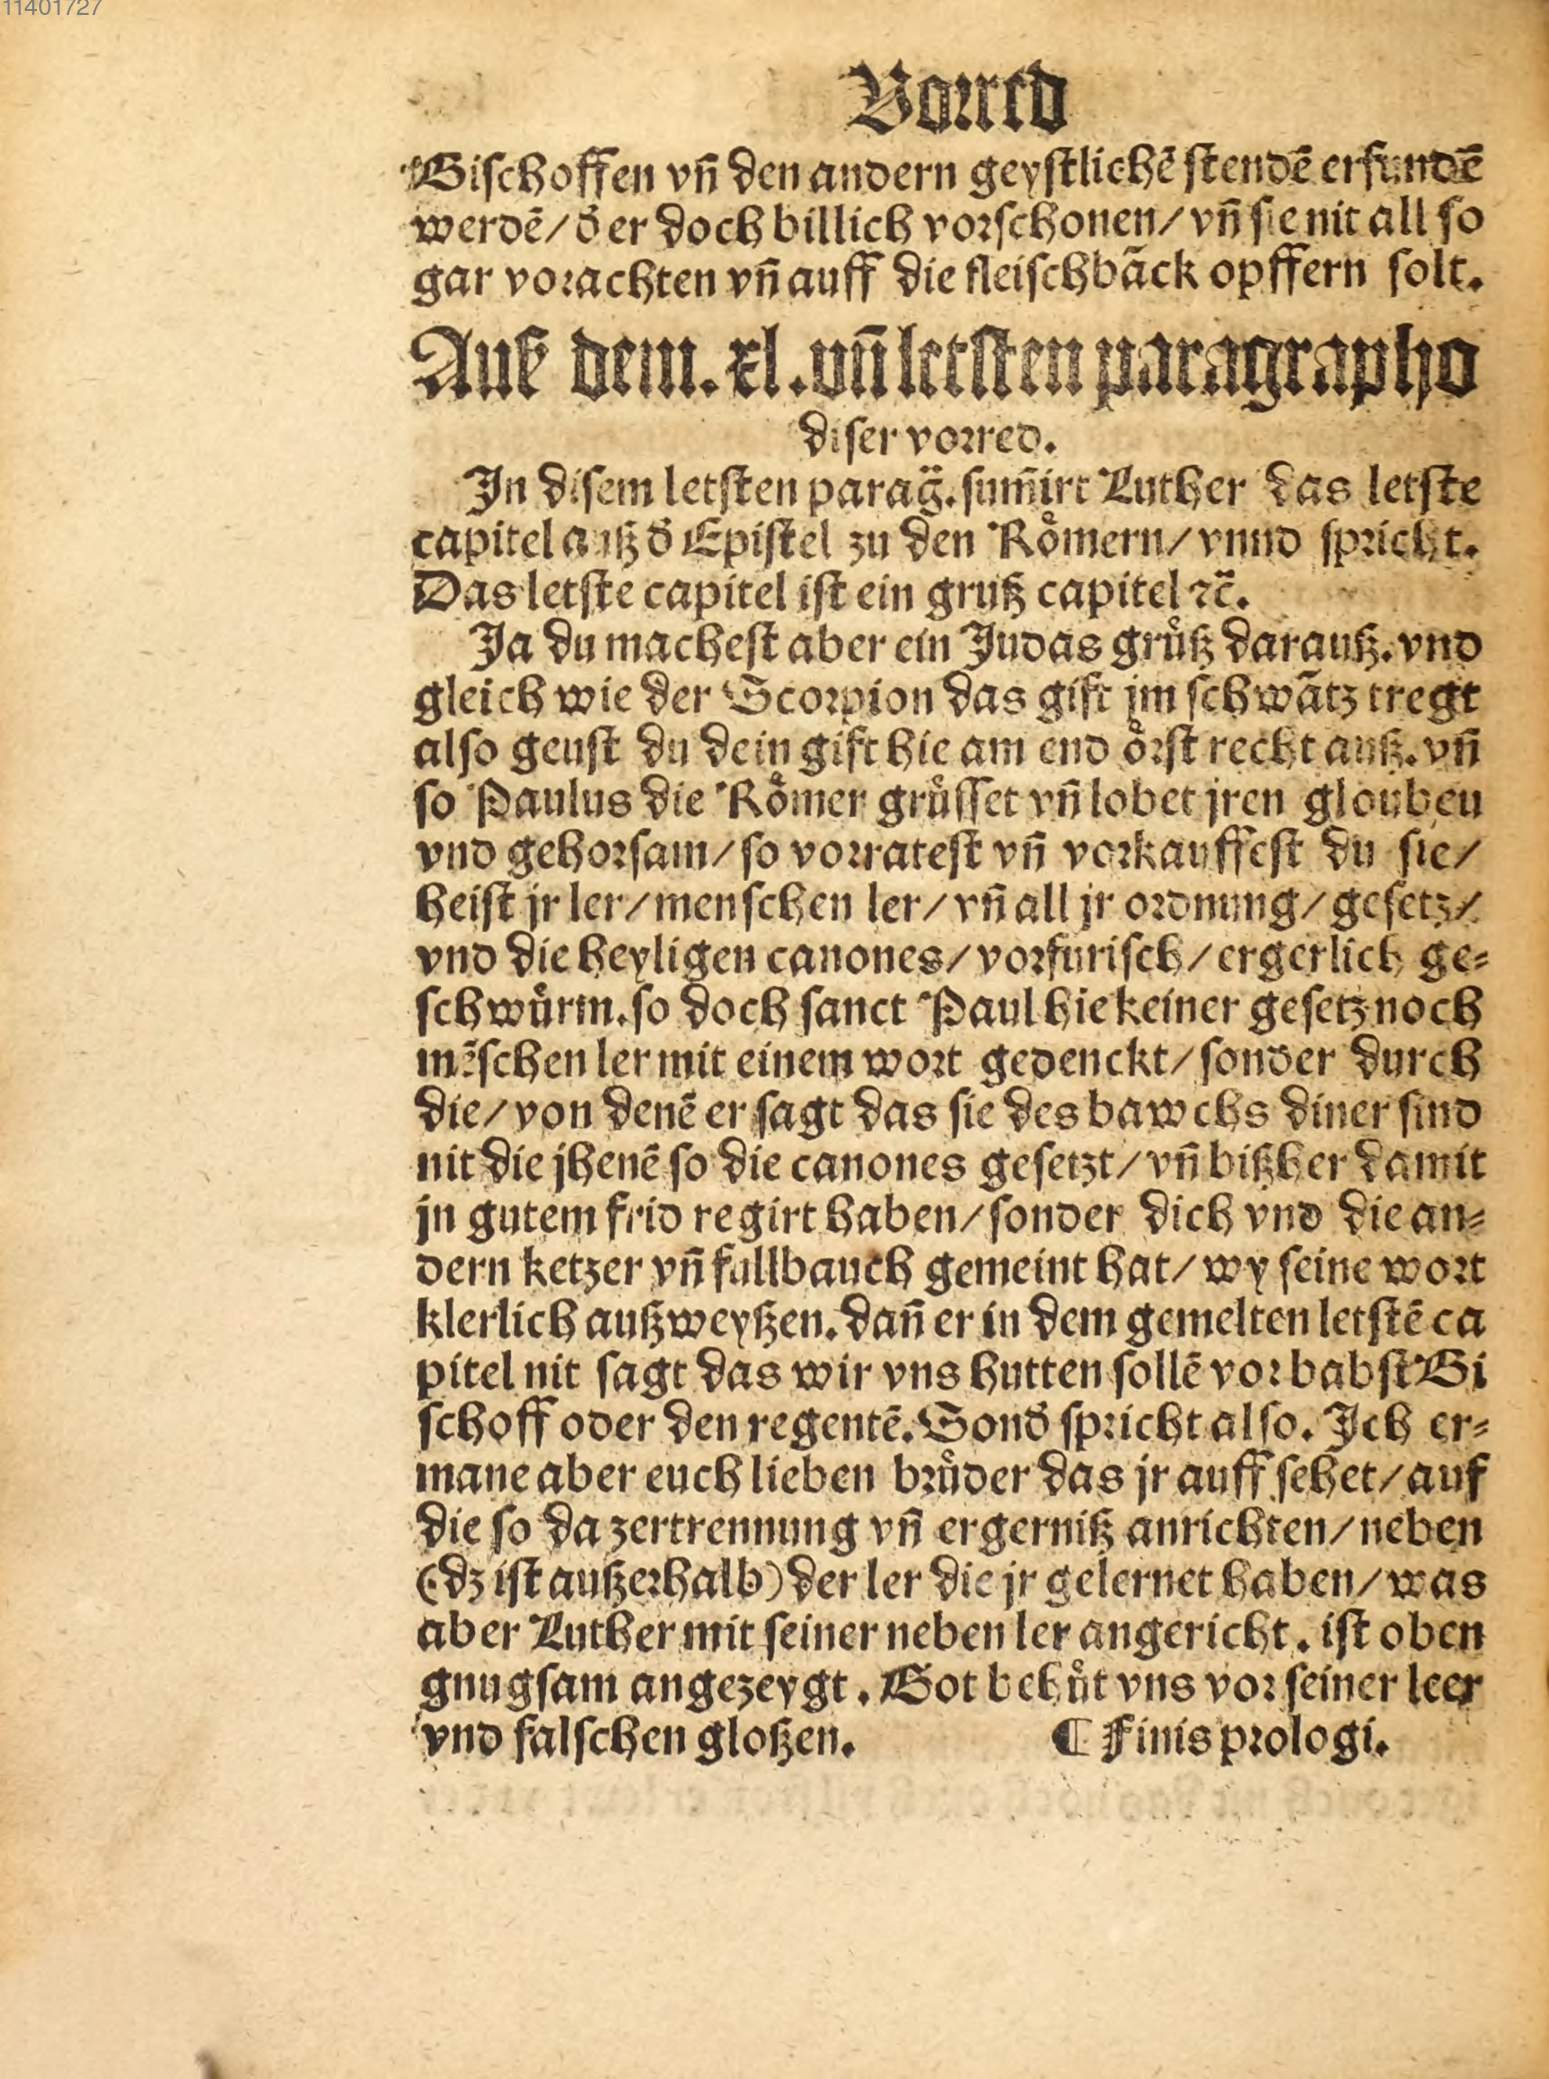 11401727
Vorred
Bischoffen vñ den andern geystlichẽ stendẽ erfundẽ
werdẽ/ d̾ er doch billich vorschonen/ vñ sie nit all so
gar vorachten vñ auff die fleischbãck opffern solt.
Auß dem. xl. vñ letsten paragrapho
diser vorred.
In disem letsten parag̃. sum̃irt Luther das letste
capitel auß d̾ Epistel zu den Roͤmern/ vnnd spricht.
Das letste capitel ist ein gruß capitel ⁊c̃.
Ja du machest aber ein Judas gruͤß darauß. vnd
gleich wie der Scorpion das gift jm schwãtz tregt
also geust du dein gift hie am end oͤrst recht auß. vñ
so Paulus die Roͤmer gruͤsset vñ lobet jren glouben
vnd gehorsam/ so vorratest vñ vorkauffest du sie/
heist jr ler/ menschen ler/ vñ all jr ordnung/ gesetz/
vnd die heyligen canones/ vorfurisch/ ergerlich ge⸗
schwuͤrm. so doch sanct Paul hie keiner gesetz noch
mẽschen ler mit einem wort gedenckt/ sonder durch
die/ von denẽ er sagt das sie des bawchs diner sind
nit die jhenẽ so die canones gesetzt/ vñ bißher damit
jn gutem frid regirt haben/ sonder dich vnd die an⸗
dern ketzer vñ fullbauch gemeint hat/ wy seine wort
klerlich außweyßen. dañ er in dem gemelten letstẽ ca
pitel nit sagt das wir vns hutten sollẽ vor babst Bi
schoff oder den regentẽ. Sond̾ spricht also. Ich er⸗
mane aber euch lieben bruͤder das jr auff sehet/ auf
die so da zertrennung vñ ergerniß anrichten/ neben
(dz ist außerhalb) der ler die jr gelernet haben/ was
aber Luther mit seiner neben ler angericht. ist oben
gnugsam angezeygt. Got behuͤt vns vor seiner leer
vnd falschen gloßen. ¶ Finis prologi.